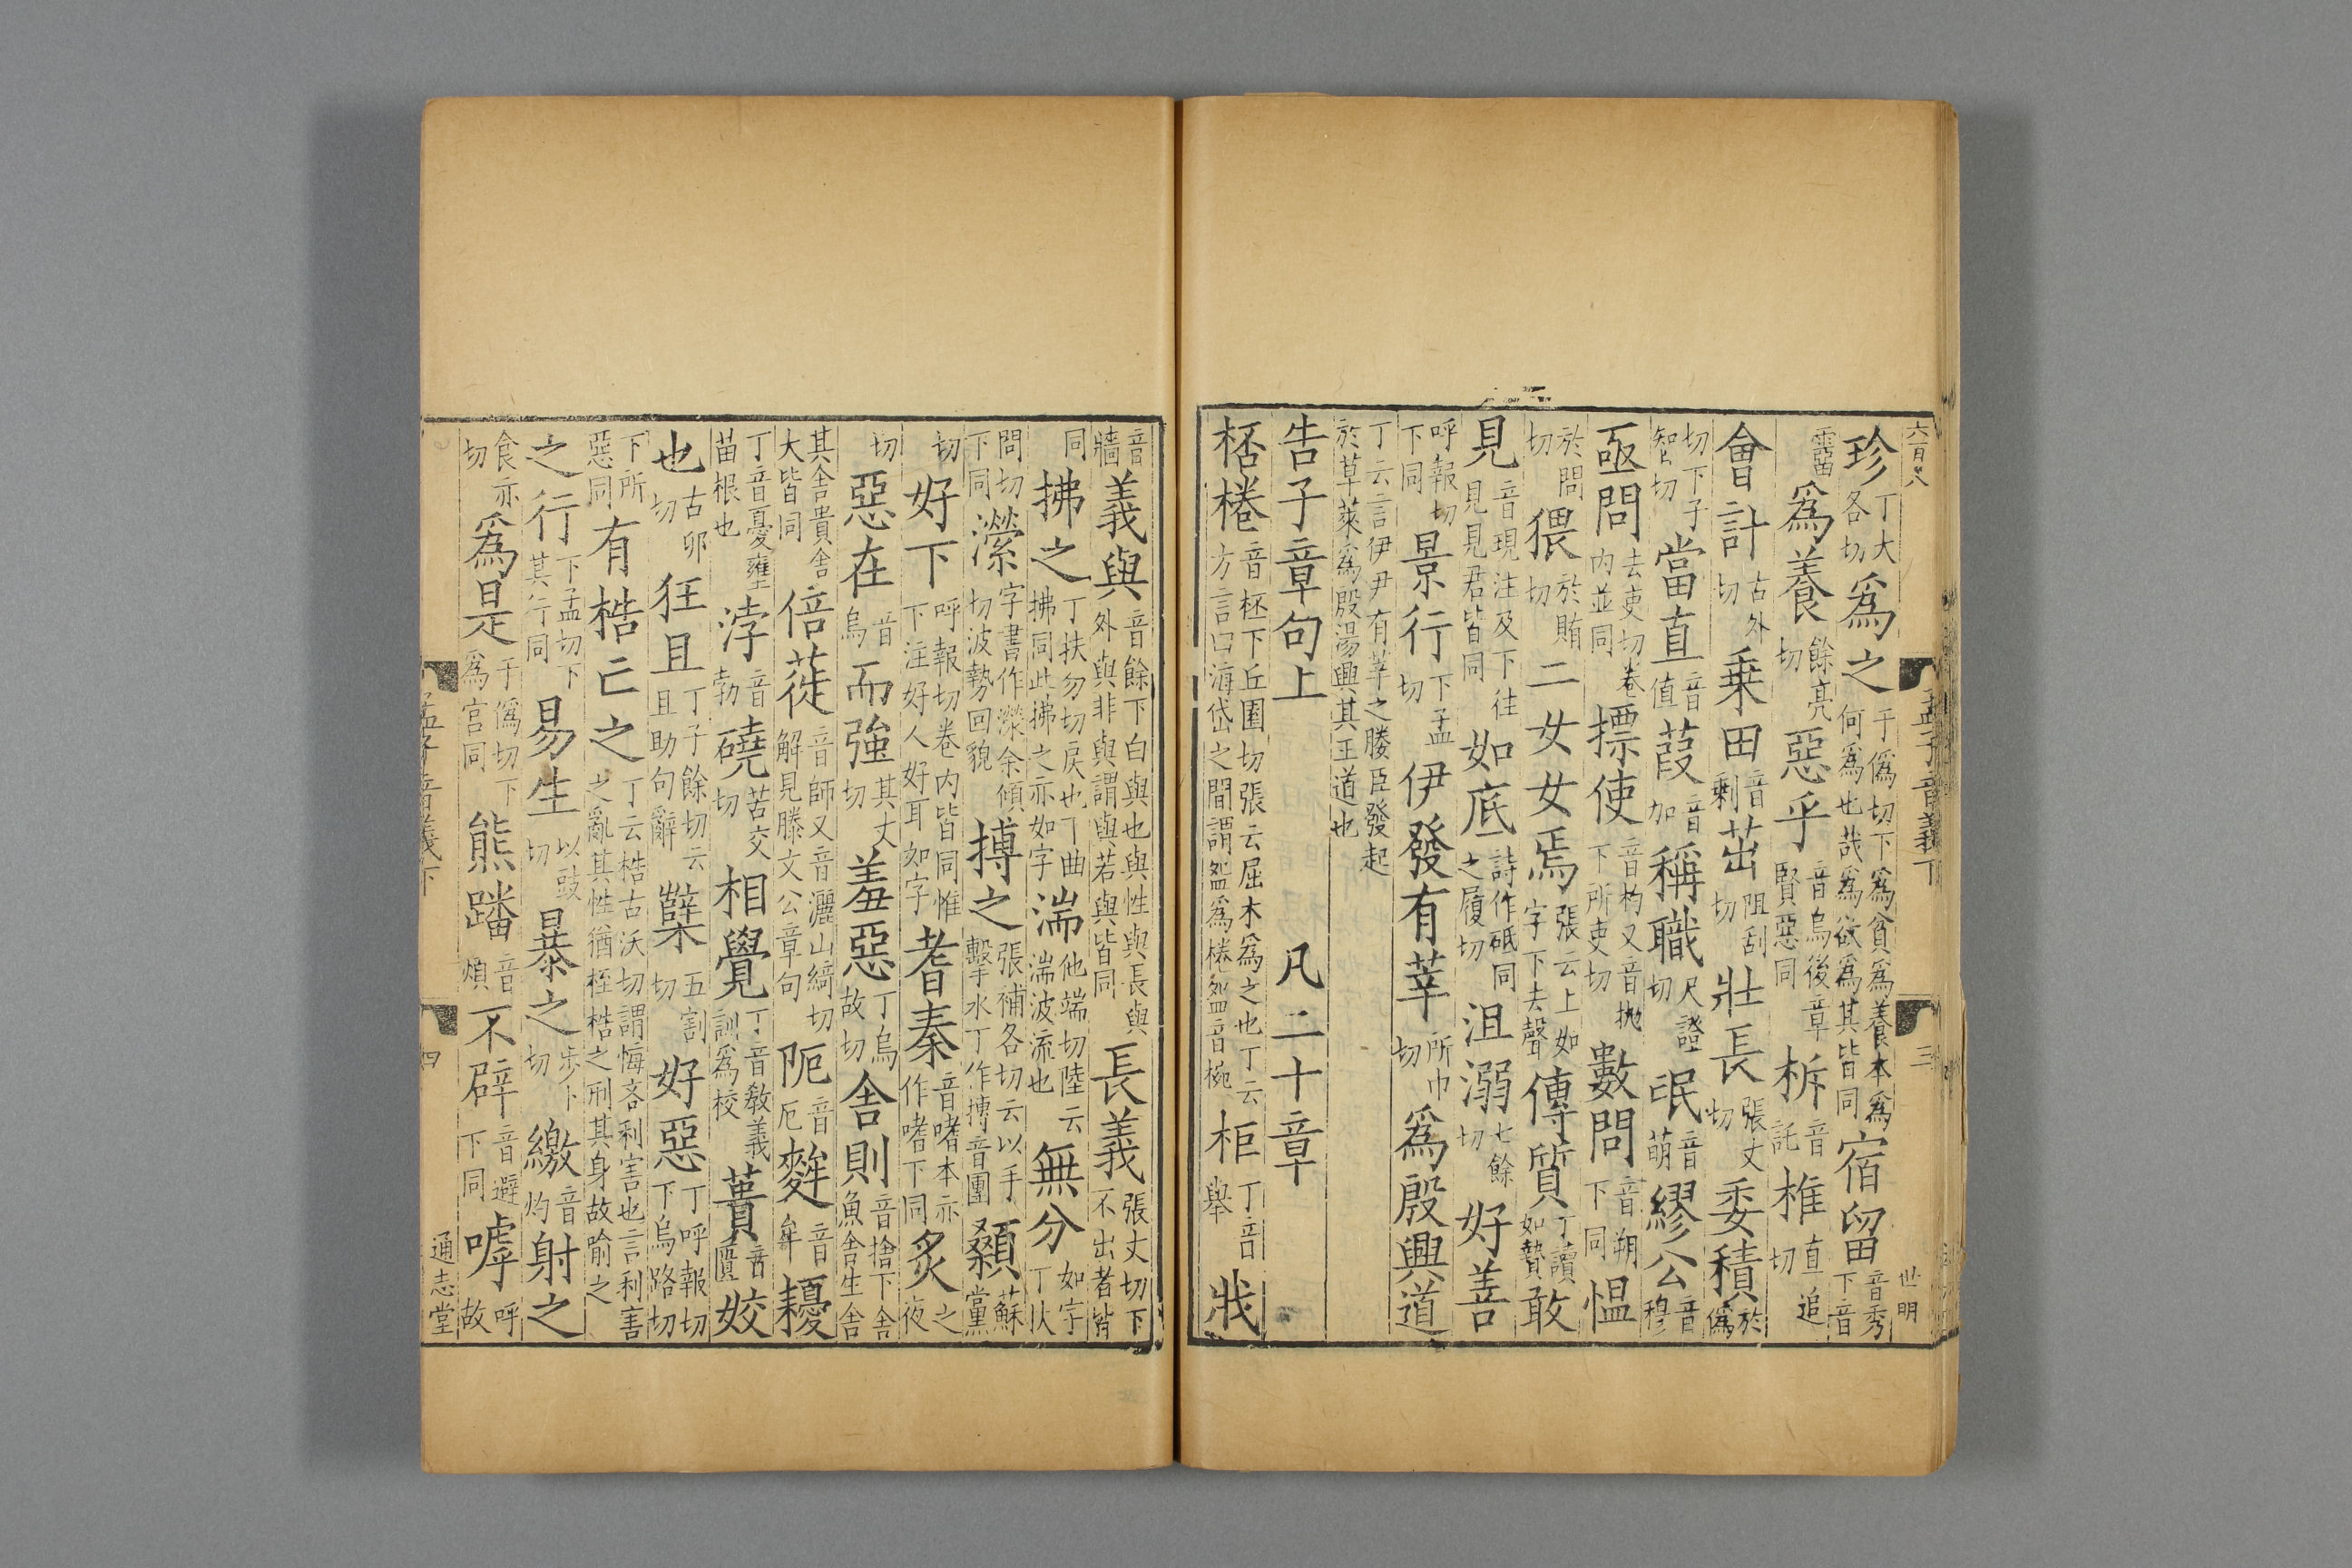 六百八
孟子音義下
三
世明
珍丁大各切爲之于僞切下爲貧爲養本爲何爲也哉爲欲爲其皆同宿留音秀下音
霤爲養餘亮切惡乎音烏後章賢惡同柝音託椎直追切
會計古外切乗田音剩茁阻刮切壯長張丈切委積於僞
切下子智切當直音值葭音加稱職尺證切氓音萌繆公音穆
亟問去吏切卷內並同摽使音杓又音抛下所吏切數問音朔下同愠
於問切猥於賄切二女女焉張云上如字下去聲傳質丁讀如贄敢
見音現注及下往見見見君皆同如底詩作砥同之履切沮溺七餘切好善
呼報切下同景行下孟切伊發有莘所巾切爲殷興道
丁云言伊尹有莘之媵臣發起於草萊爲殷湯興其王道也
告子章句上 凡二十章
桮棬音柸下丘圍切張云屈木爲之也丁云方言曰海岱之間謂㿿爲棬㿿音椀柜丁音舉戕
音牆義與音餘下白與也與性與長與外與非與謂與若與皆同長義張丈切下不出者皆
同拂之丁扶勿切戾也丁曲拂同此拂之亦如字湍他端切陸云湍波流也無分如字丁扶
問切下同濴字書作濚余傾切波勢回貌搏之張補各切云以手擊水丁作摶音團顙蘇黨
切好下呼報切卷內皆同惟下注好人好耳如字耆秦音嗜本亦作嗜下同炙之夜
切惡在音烏而強其丈切羞惡丁烏故切舍則音捨下舍魚舍生舍
其舍貴舍大皆同倍蓰音師又音灑山綺切解見滕文公章句阨音厄麰音牟耰
丁音憂壅苗根也浡音勃磽苦交切相覺丁音敎義訓爲校蕢音匱姣
也古卯切狂且丁子餘切云且助句辭糱五割切好惡丁呼報切下烏路切
下所惡同有梏亡之丁云梏古沃切謂悔吝利害也言利害之亂其性猶桎梏之刑其身故喻之
之行下孟切下其行同易生以豉切暴之步卜切繳音灼射之
食亦切爲是于僞切下爲宮同熊蹯音煩不辟音避下同嘑呼故
孟子音義下
四
通志堂